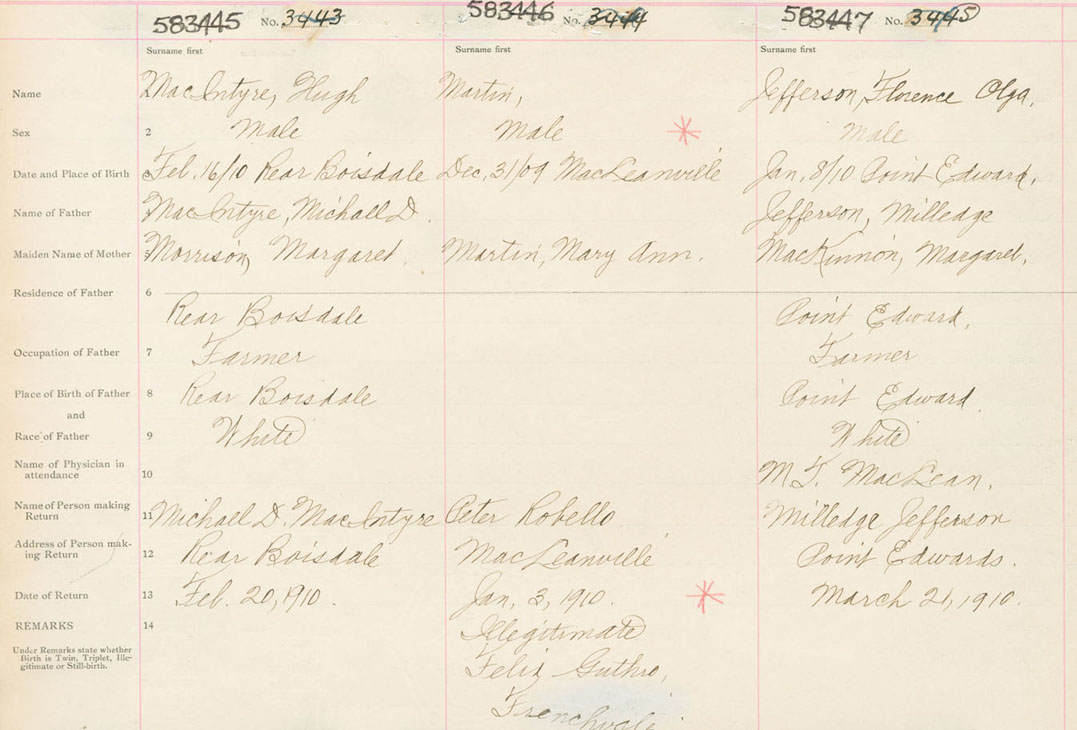 583445 No. 3443 583446 No. 3444 583447 No. 3445
Surname first Surname first Surname first
Name 1 MacIntyre, Hugh Martin, Jefferson, Florence Olga.
Sex 2 Male Male Male
Date and Place of Birth 3 Feb. 16/10 Rear Boisdale Dec. 31/09 MacLeanville Jan. 8/10 Point Edward.
Name of Father MacIntyre, Michael D. Jefferson, Milledge
Maiden Name of Mother 5 Morrison, Margaret. Martin, Mary Ann. MacKinnon, Margaret.
Residence of Father 6
Rear Boisdale Point Edward.
Occupation of Father 7 Farmer Farmer
Place of Birth of Father 8 Rear Boisdale Point Edward.
and
Race of Father 9 White White
Name of Physician in
attendance 10 M. T. MacLean.
Name of Person making
Return 11 Michael D. MacIntyre Peter Robello Milledge Jefferson
Address of Person mak-
ing Return 12 Rear Boisdale MacLeanville Point Edwards.
Date of Return 13 Feb. 20, 1910. Jan. 3, 1910. March 21, 1910.
REMARKS 14 Illegitimate
Under Remarks state whether
Birth is Twin, Triplet, Ille-
gitimate or Still-birth.
Felix Guthro,
Frenchvale